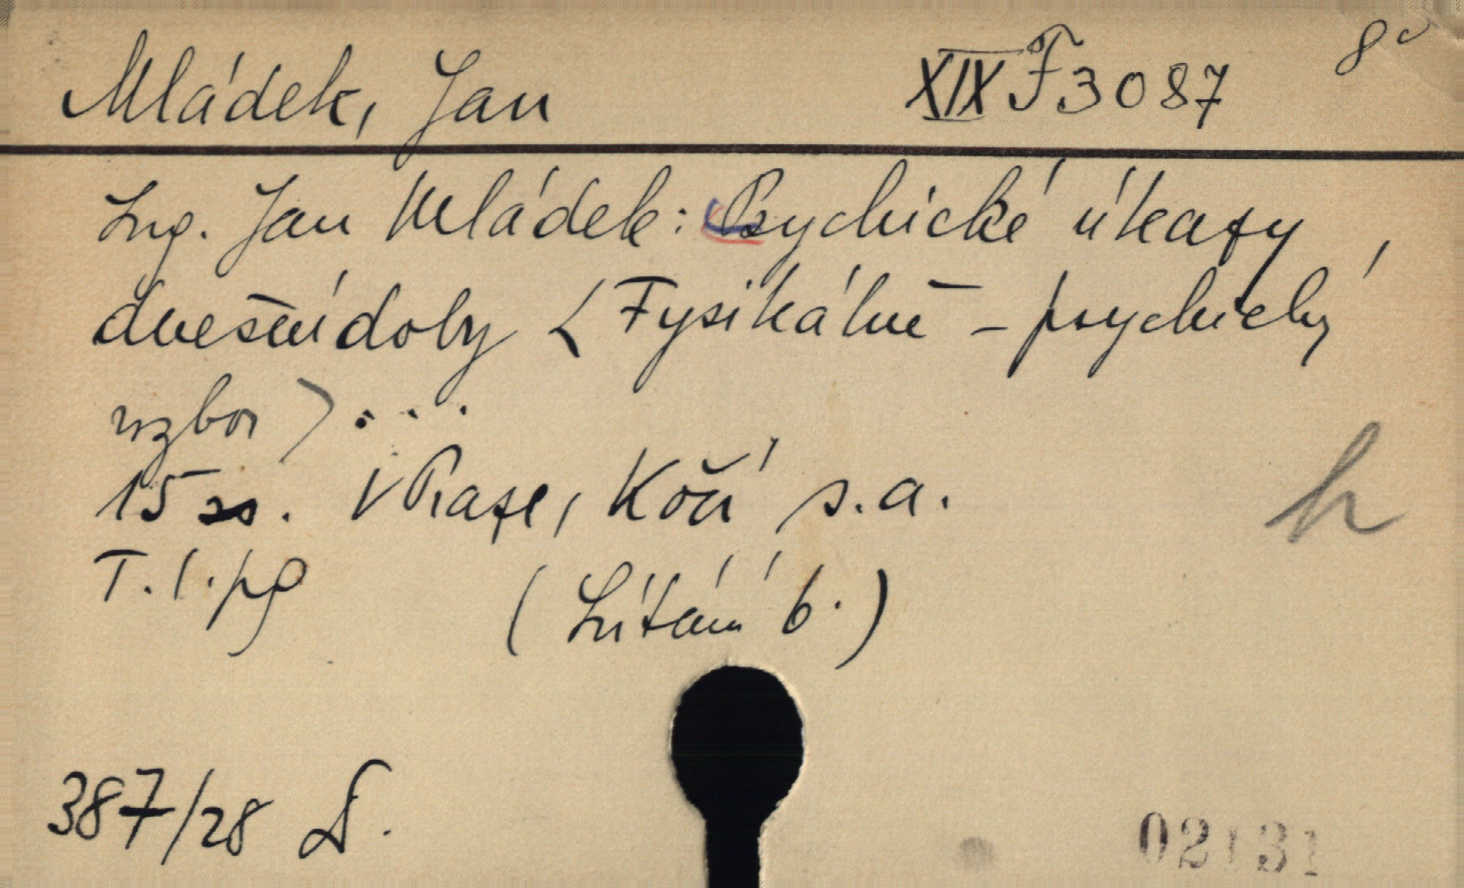 Mládek, Jan XIX F 3087 8°
Ing. Jan Mládek: Psychické úkazy
dnešní doby < Fysikálně - psychický
rozbor > ...
15 ss. V Praze, Kočí s.a.
T. l. pg (Lítání b.)
h
387/28 D.
02131